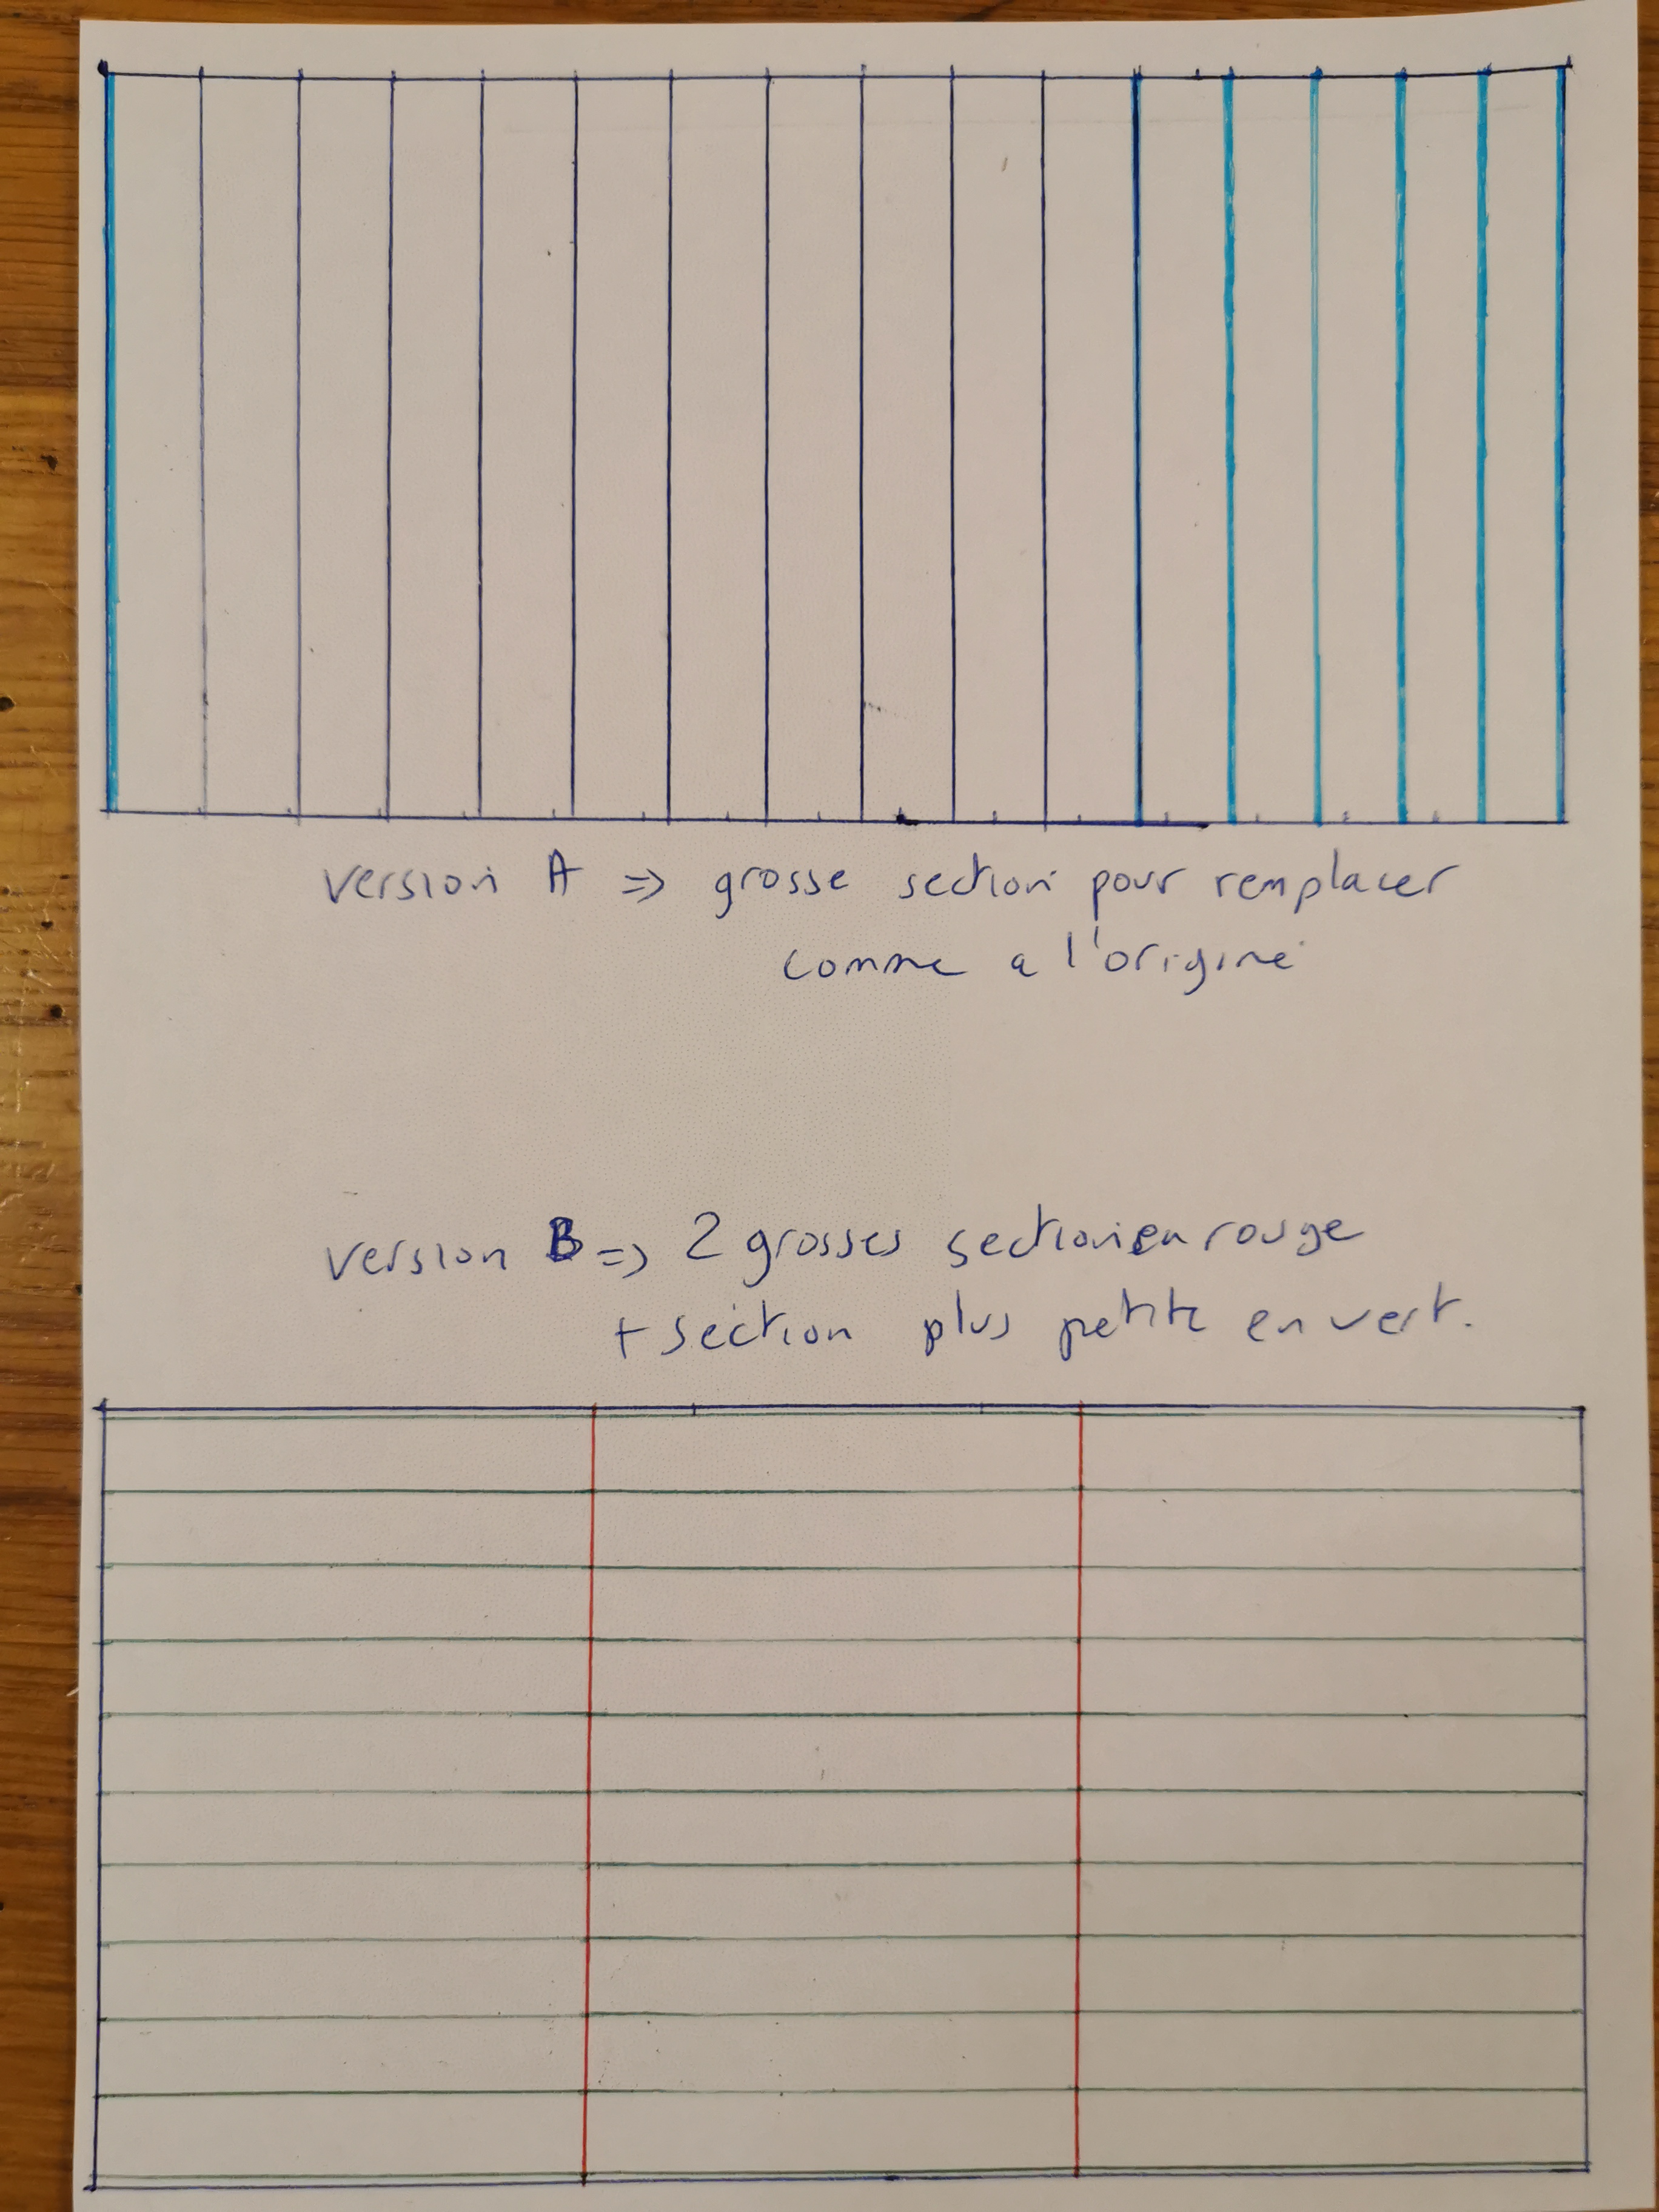 version A => grosse section pour remplacer
comme a l'origine
version B => 2 grosses section en rouge
+ section plus petite en vert.